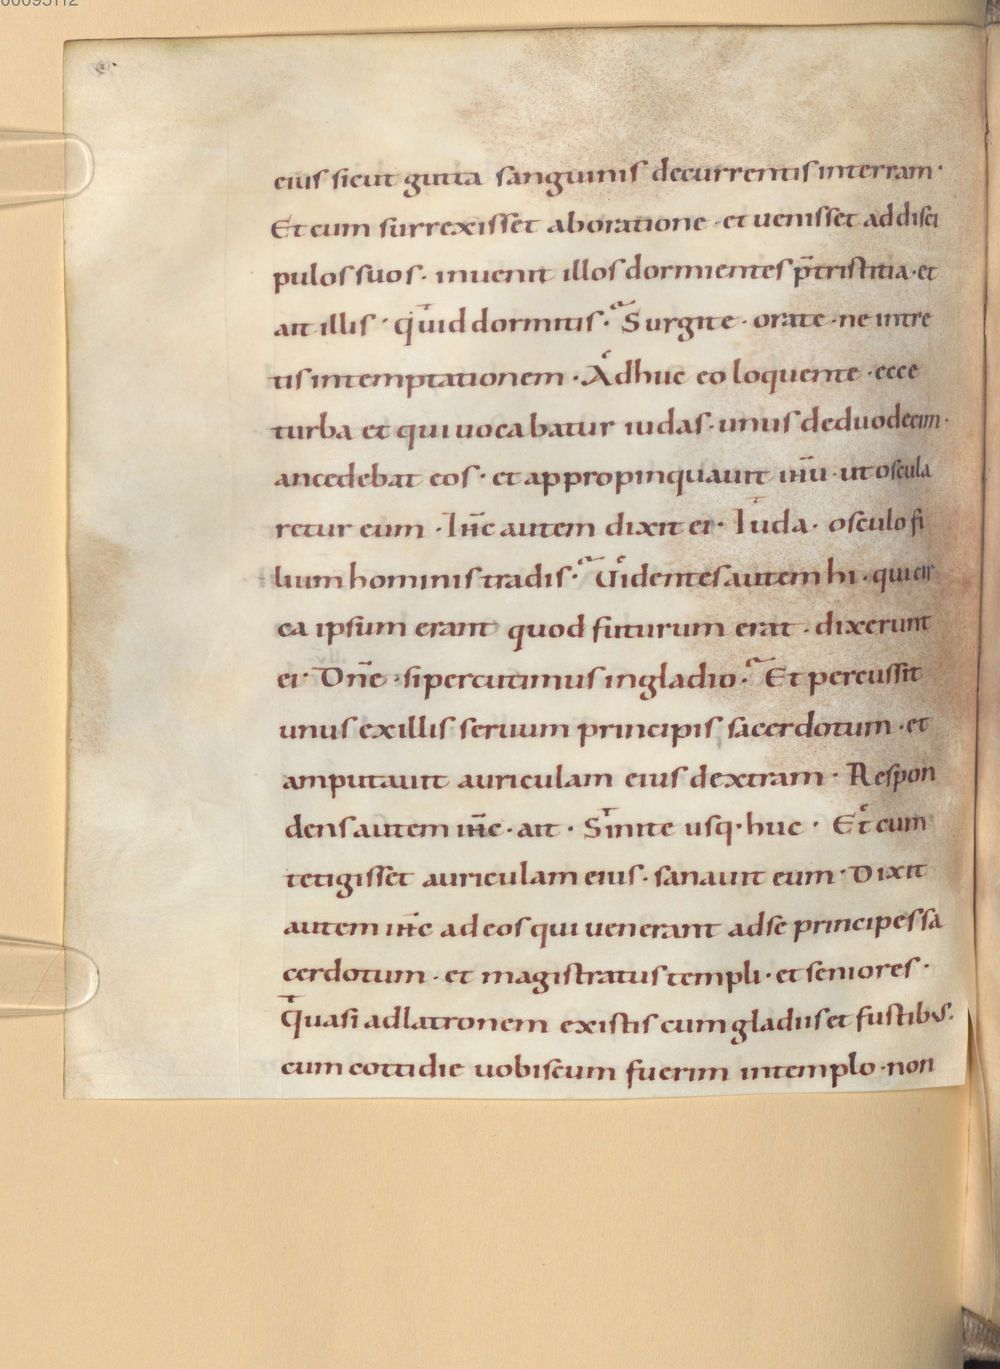 eius sicut gutta sanguinis decurrentis interram·
Et cum surrexisset aboratione · et uenisset addisci
pulos suos · inuenit illos dormientes p̄tristitia · et
ait illis · quid dormitis · Surgite · orate · ne intre
tis intemptationem · Adhuc eo loquente · ecce
turba et qui uocabatur iudas · unus deduodecim ·
ancedebat eos · et appropinquauit ih̅u · ut oscula
retur eum · Ih̅c autem dixit ei · Iuda · osculo fi
lium hominis tradis · Uidentes autem hi · qui cir
ca ipsum erant quod futurum erat · dixerunt
ei · Dn̅e · si percutimus ingladio · Et percussit
unus exillis seruum principis sacerdotum · et
amputauit auriculam eius dextram · Respon
dens autem ih̅c · ait · Sinite usq· huc · Et cum
tetigisset auriculam eius · sanauit eum · Dixit
autem ih̅c ad eos qui uenerant adse principes sa
cerdotum · et magistratus templi · et seniores ·
Quasi adlatronem existis cum gladiis et fustibus.
cum cottidie uobiscum fuerim intemplo · non